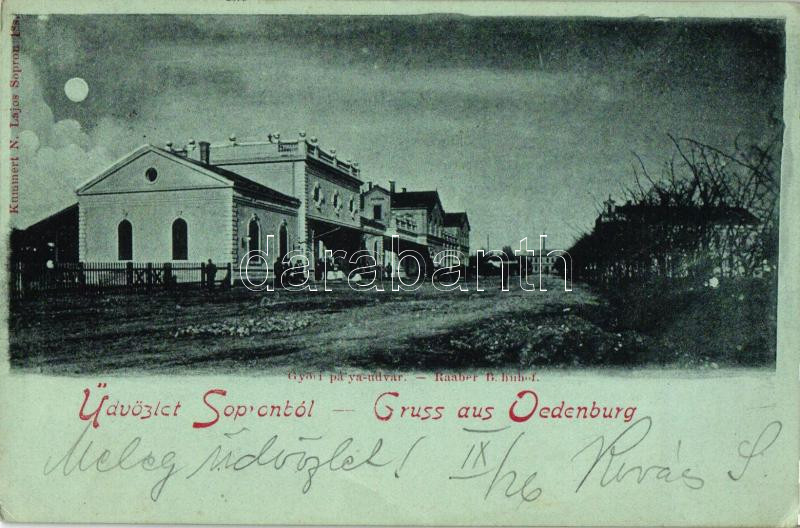 Kummert N. Lajos Sopron 188.
darabanth
Győri pa'ya-udvar. — Raaber B.hnhof.
Üdvözlet Sopronból — Gruss aus Oedenburg
Meleg üdvözlet! IX/26 Kovás S.